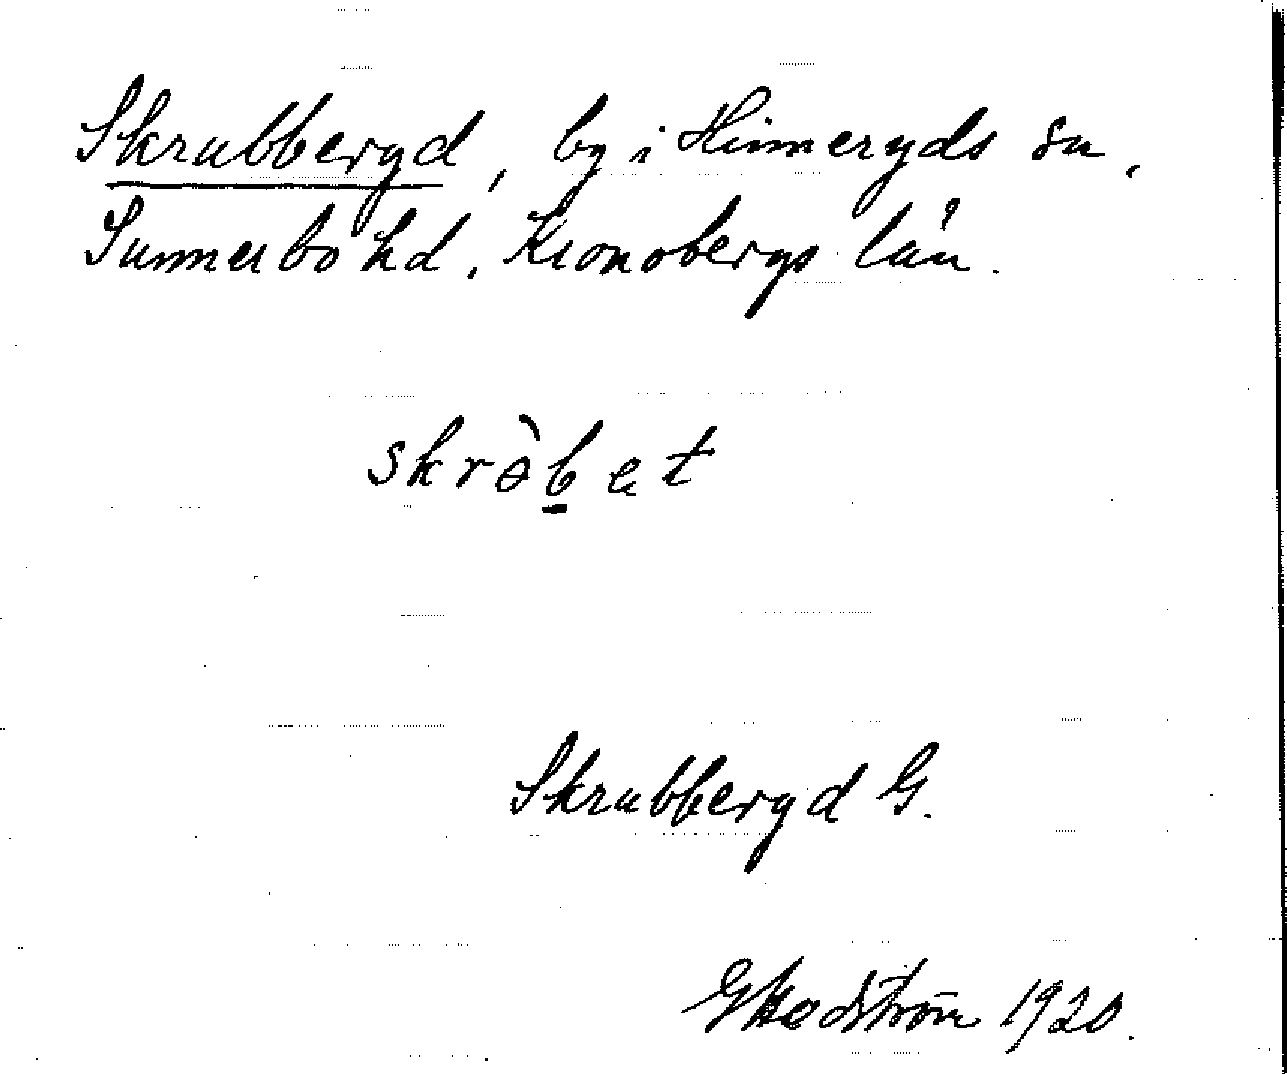 Skrubberyd, by i Hinneryds sn,
Sunnerbo hd, Kronobergs län.
skròbet
Skrubberyd G.
G Hedström 1920.